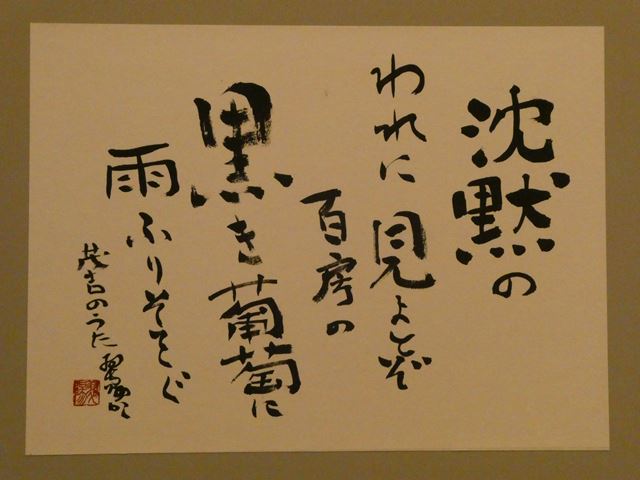 沈黙の
われに見よとぞ
百房の
黒き葡萄に
雨ふりそそぐ
茂吉のうた